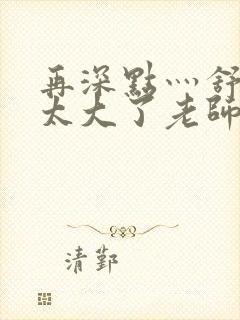 再深點灬舒
太大了老師
清鄞